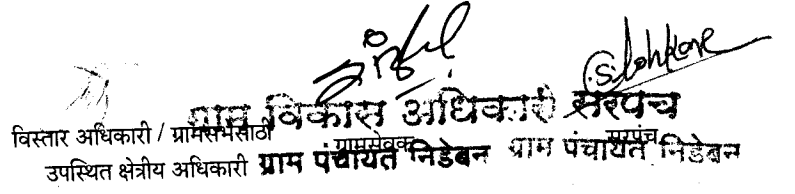 ग्राम विकास अधिकारी सरपंच
विस्तार अधिकारी / ग्रामसभेसाठी ग्रामसेवक सरपंच
उपस्थित क्षेत्रीय अधिकारी ग्राम पंचायत निडेबन ग्राम पंचायत निडेबन